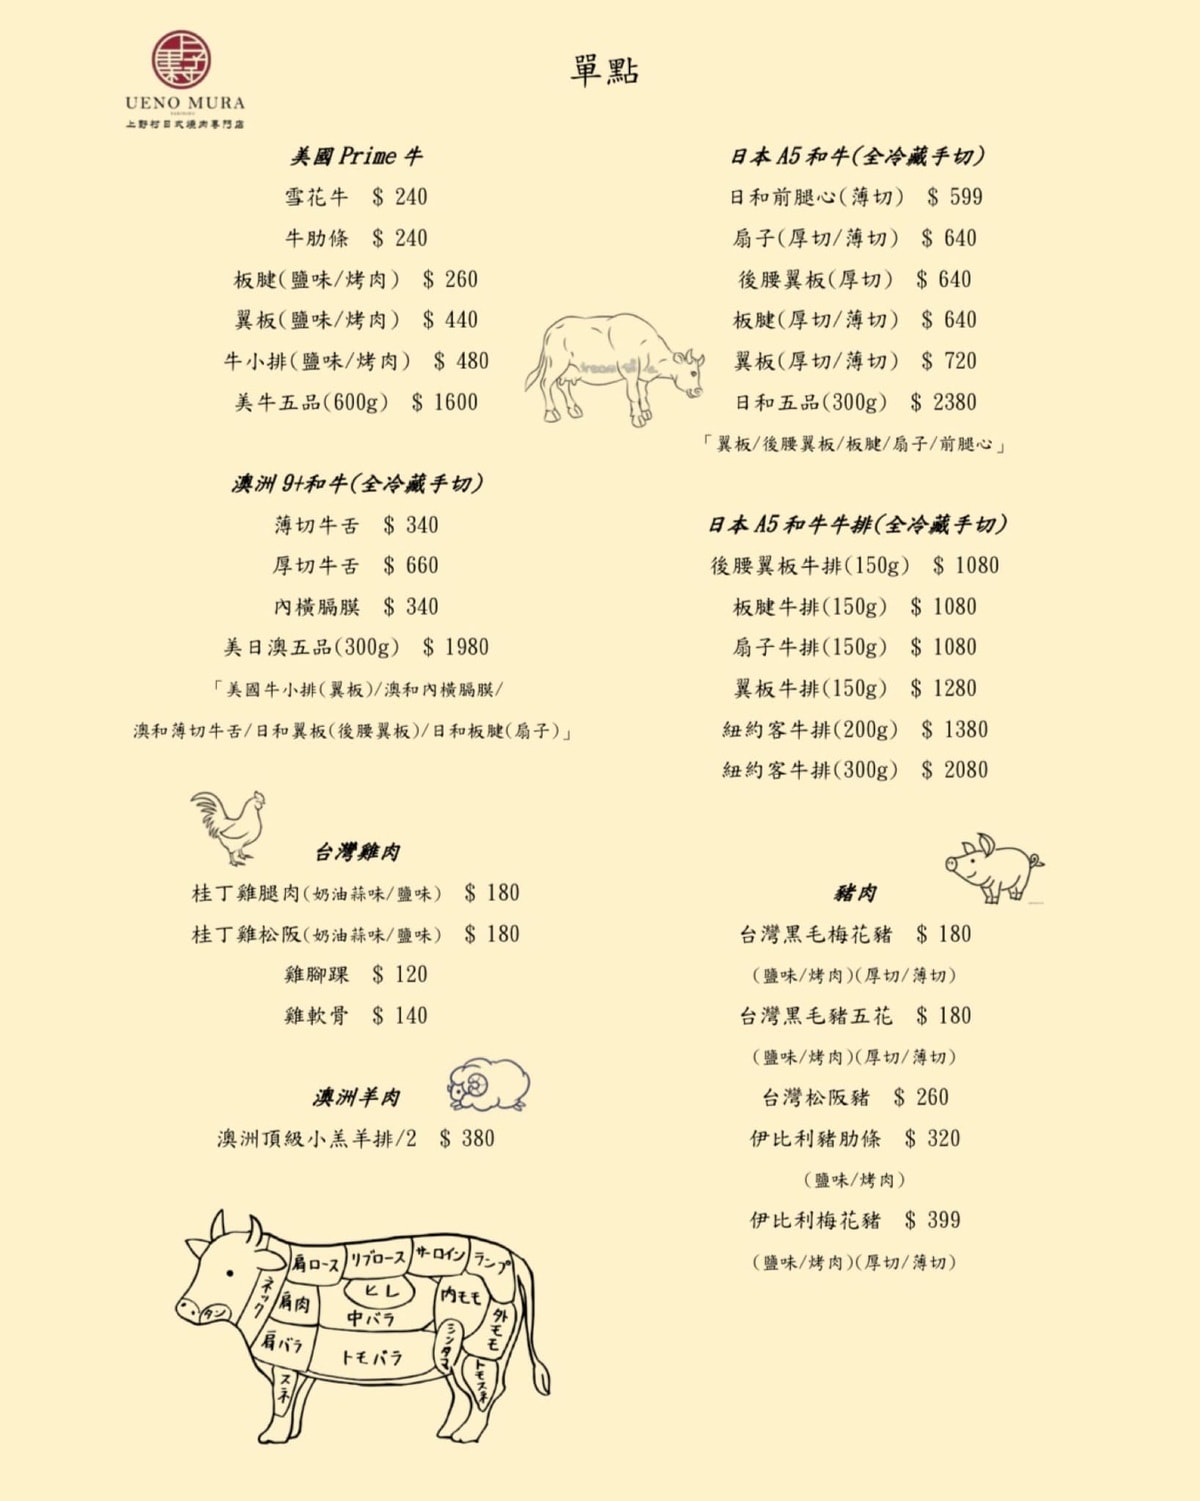 UENO MURA
上野村日式燒肉專門店
單點
美國Prime牛
雪花牛 $ 240
牛肋條 $ 240
板腱(鹽味/烤肉) $ 260
翼板(鹽味/烤肉) $ 440
牛小排(鹽味/烤肉) $ 480
美牛五品(600g) $ 1600
澳洲9+和牛(全冷藏手切)
薄切牛舌 $ 340
厚切牛舌 $ 660
內橫膈膜 $ 340
美日澳五品(300g) $ 1980
「美國牛小排(翼板)/澳和內橫膈膜/
澳和薄切牛舌/日和翼板(後腰翼板)/日和板腱(扇子)」
台灣雞肉
桂丁雞腿肉(奶油蒜味/鹽味) $ 180
桂丁雞松阪(奶油蒜味/鹽味) $ 180
雞腳踝 $ 120
雞軟骨 $ 140
澳洲羊肉
澳洲頂級小羔羊排/2 $ 380
日本A5和牛(全冷藏手切)
日和前腿心(薄切) $ 599
扇子(厚切/薄切) $ 640
後腰翼板(厚切) $ 640
板腱(厚切/薄切) $ 640
翼板(厚切/薄切) $ 720
日和五品(300g) $ 2380
「翼板/後腰翼板/板腱/扇子/前腿心」
日本A5和牛牛排(全冷藏手切)
後腰翼板牛排(150g) $ 1080
板腱牛排(150g) $ 1080
扇子牛排(150g) $ 1080
翼板牛排(150g) $ 1280
紐約客牛排(200g) $ 1380
紐約客牛排(300g) $ 2080
豬肉
台灣黑毛梅花豬 $ 180
(鹽味/烤肉)(厚切/薄切)
台灣黑毛豬五花 $ 180
(鹽味/烤肉)(厚切/薄切)
台灣松阪豬 $ 260
伊比利豬肋條 $ 320
(鹽味/烤肉)
伊比利梅花豬 $ 399
(鹽味/烤肉)(厚切/薄切)
肩ロース
リブロース
サーロイン
ランプ
ネック
肩肉
ヒレ
中バラ
内モモ
外モモ
タン
肩バラ
トモバラ
シンタマ
スネ
トモスネ